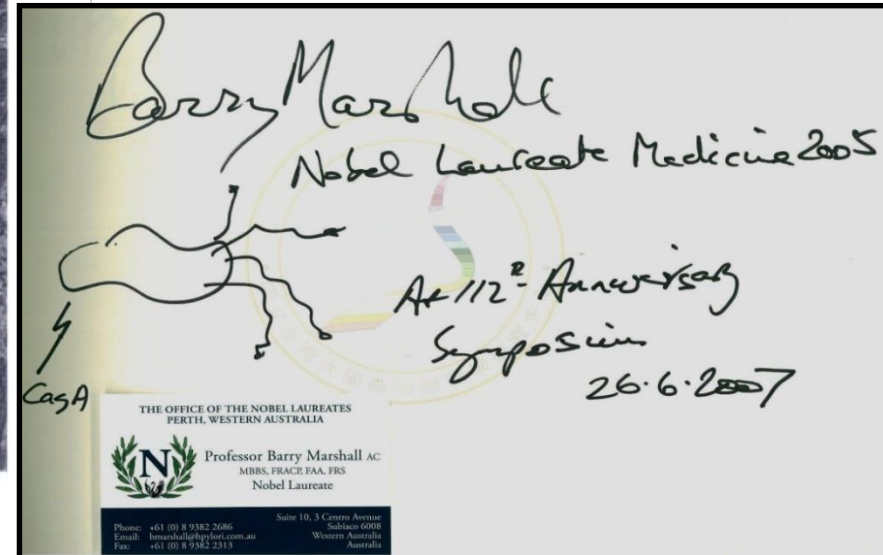 Barry Marshall
Nobel Laureate Medicine 2005
At 112 Anniversary
Symposium
26.6.2007
CagA
THE OFFICE OF THE NOBEL LAUREATES
PERTH, WESTERN AUSTRALIA
N
Professor Barry Marshall AC
MBBS, FRACP, FAA, FRS
Nobel Laureate
Phone: +61 (0) 8 9382 2686
Email: bmarshall@hpylori.com.au
Fax: +61 (0) 8 9382 2313
Suite 10, 3 Centro Avenue
Subiaco 6008
Western Australia
Australia